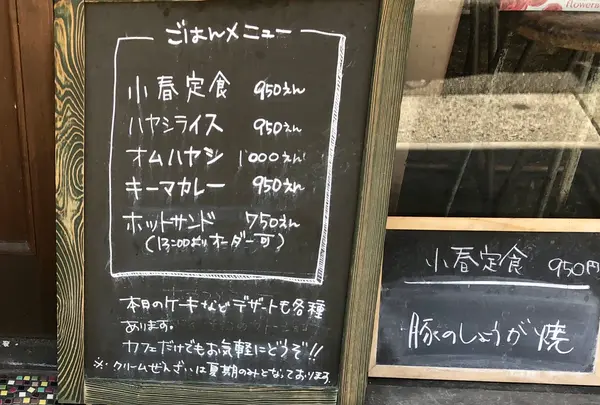 ごはんメニュー
小春定食 950えん
ハヤシライス 950えん
オムハヤシ 1000えん
キーマカレー 950えん
ホットサンド 750えん
(13:00よりオーダー可)
本日のケーキなどデザートも各種
あります。
カフェだけでもお気軽にどうぞ!!
※クリームぜんざいは夏期のみとなっております。
flower
小春定食 950円
豚のしょうが焼